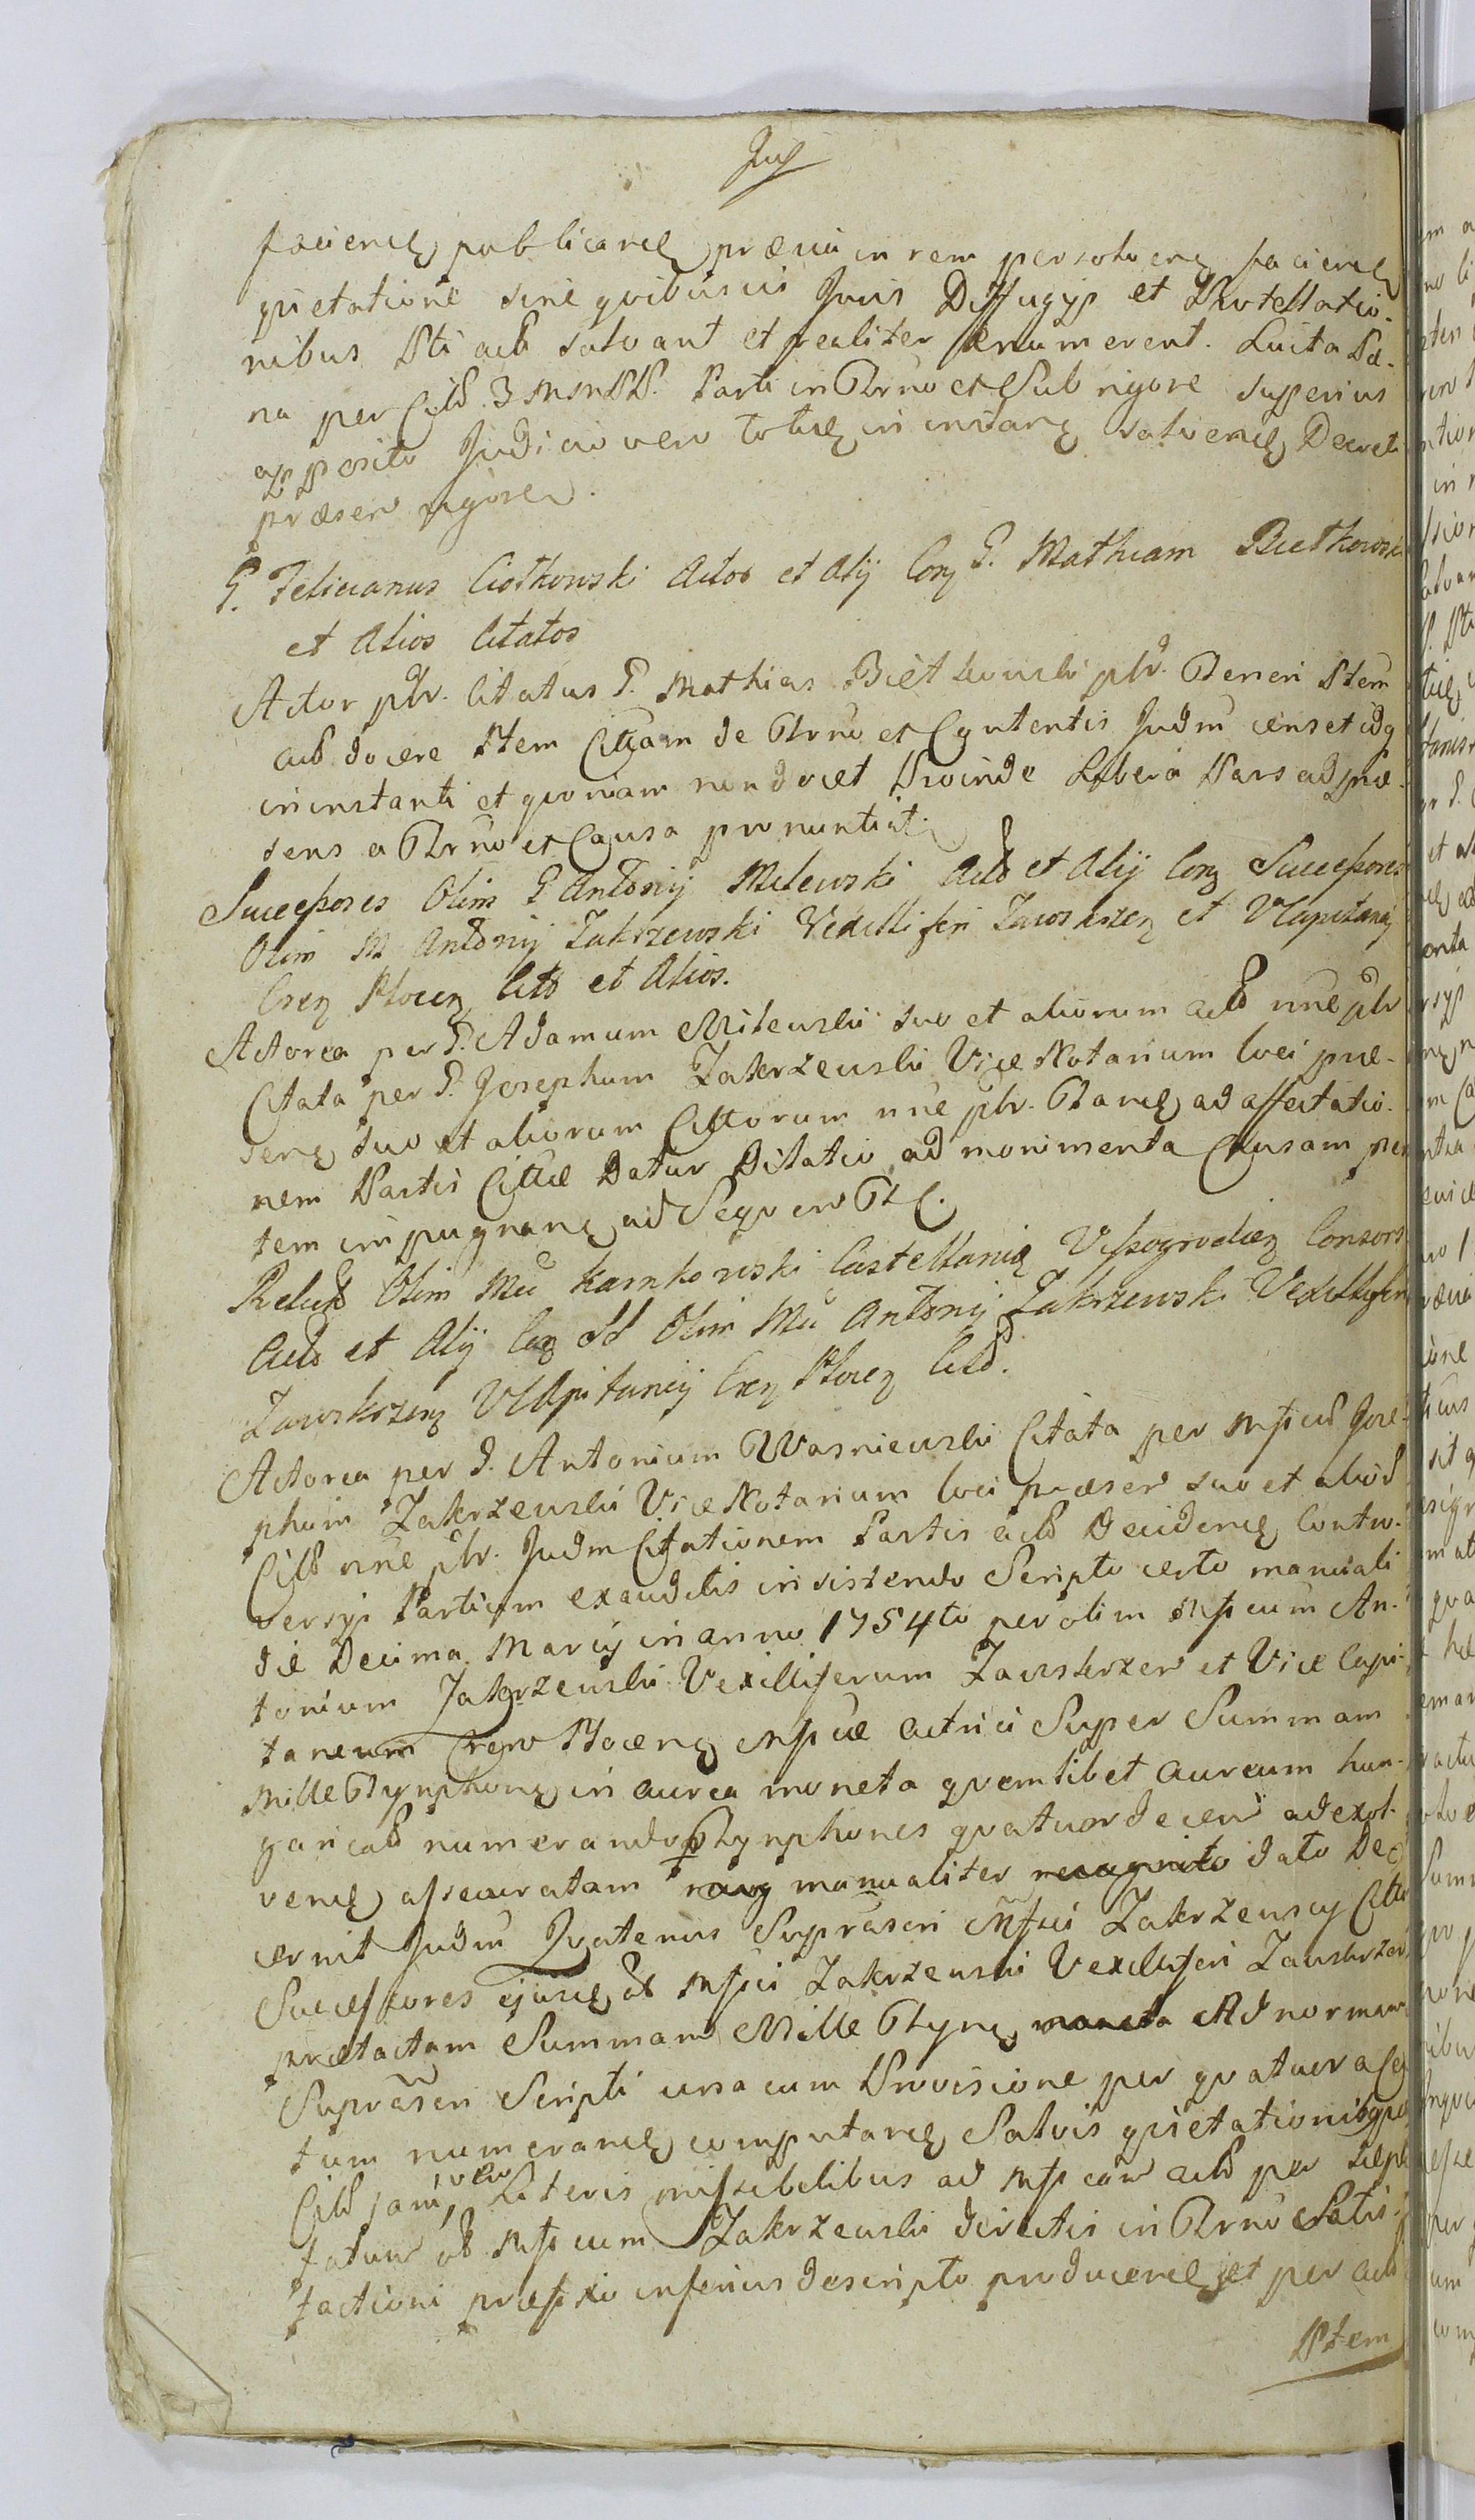 facienꝫ publicanꝫ prævia in rem persolvenꝫ facienꝫ
quietatione sine quibusvis Juris Diffugijs et Protestatio-
nibus Pti actb solvant et realiter enumerent. Luita Pæ-
na per Cittb 3 M M PP. Parti in Trno et Sub rigore superius
apposito Judicio vero totiꝫ in instanꝫ solvenꝫ Decreti
præsen rigore.
G. Felicianus Ciotkowski Actor et Alij Conꝫ G. Mathiam Bietkowski
et Alios Citatos
Actor pltr. Citatus G. Mathias Bietkowski pltr. Teneri Ptem
actb docere Ptem Cittam de Trno et Contentis Judm censet idꝫ
in instanti et quoniam non docet Proinde Libera Pars ad præ-
sens a Trno et Causa pronuntiat.
Successores Olim G Antonij Milewski Actb et Alij Conꝫ Successores
Olim M Antonij Zakrzewski Vexilliferi Zawskrzenꝫ et VCapitanej
Crenꝫ Plocenꝫ Cittb et Alios.
Actorea per G. Adamum Milewski suo et aliorum actb nne pltr
Citata per G. Josephum Zakrzewski Vice Notarium loci præ-
senꝫ suo et aliorum Cittorum nne pltr. Stanꝫ ad affectatio-
nem Partis Cittæ Datur Dilatio ad monimenta Causam par-
tem impugnanꝫ ad Sequen T C.
Relicta Olim Mci Karnkowski Castellani Wyszogrodienꝫ Consors
Actb et Alij Conꝫ SS Olim Mci Antonij Zakrzewski Vexilliferi
Zawskrzenꝫ VCapitanej Crenꝫ Plocenꝫ Cittb.
Actorea per G. Antonium Wasniewski Citata per Mfcum Jose-
phum Zakrzewski Vice Notarium loci præsen suo et aliorb
Cittb nne pltr. Judm Citationem Partis actb Decidenꝫ Contro-
versijs Partium exauditis insistendo Scripto certo manuali
die Decima Marcij in anno 1754to per olim Mfcum An-
tonium Zakrzewski Vexilliferum Zawskrzen et Vice Capi-
taneum Cren Plocenꝫ Mfcæ actrici Super Summam
Mille Tynphonꝫ in aurea moneta quemlibet aureum hun-
garicalb numerando p Tynphones quatuordecem ad exol-
venꝫ assecuratam manualiter dato De-
cernit Judm Quatenus Suprascri Mfci Zakrzewscy Citti
Successores ejusdꝫ ol Mfci Zakrzewski Vexilliferi Zawskrzen
prætactam Summam Mille Tynꝫ Ad normam
Suprascri Scripti una cum Provisione per quatuor a Cen
tum numeranꝫ computanꝫ Salvis quietationibus per
Cittb jam, vero Literis missibilibus ad Mfcam actb per
fatum ol Mfcum Zakrzewski directis in Trno Satis-
factioni præfixo inferius descripto producenꝫ et per actb
Ptem